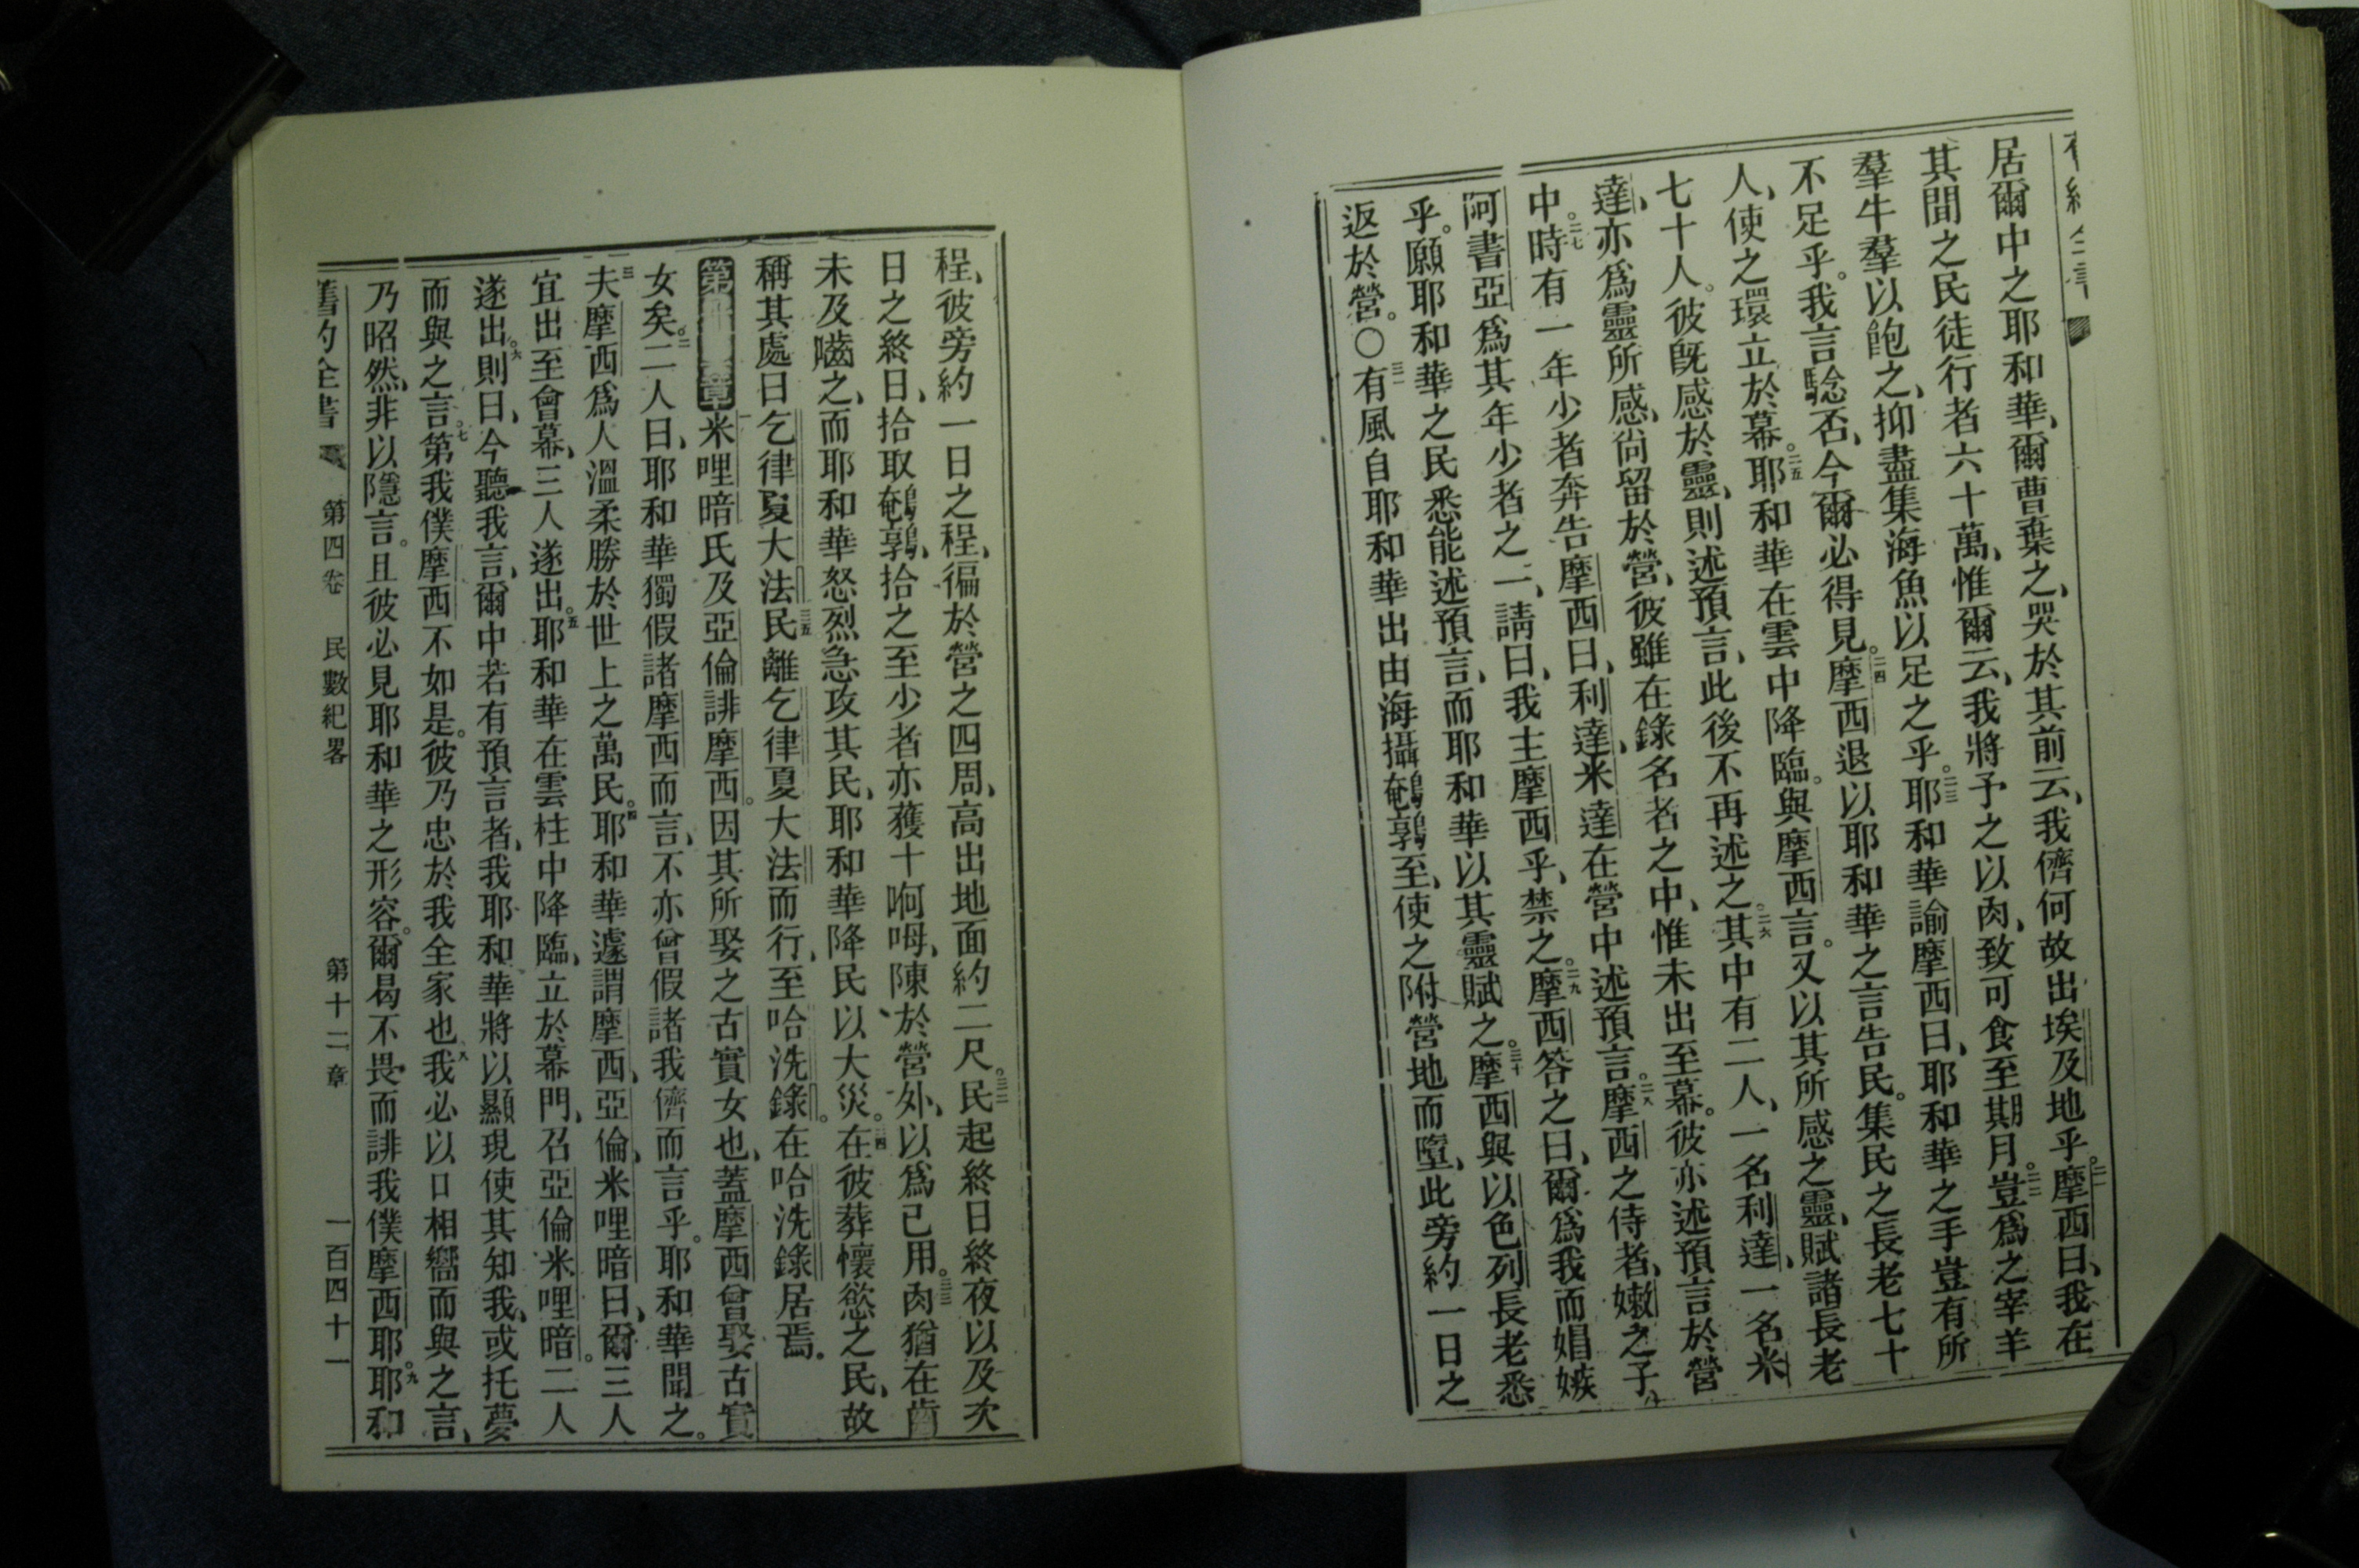 居爾中之耶和華、爾曹棄之、哭於其前云、我儕何故出埃及地乎。二一摩西曰、我在
其間之民徒行者六十萬、惟爾云、我將予之以肉、致可食至期月。二二豈爲之宰羊
羣牛羣以飽之、抑盡集海魚以足之乎。二三耶和華諭摩西曰、耶和華之手豈有所
不足乎。我言騐否、今爾必得見。二四摩西退以耶和華之言告民。集民之長老七十
人、使之環立於幕。二五耶和華在雲中降臨。與摩西言。又以其所感之靈、賦諸長老
七十人。彼旣感於靈、則述預言、此後不再述之。二六其中有二人、一名利達、一名米
達、亦爲靈所感、尙留於營、彼雖在錄名者之中、惟未出至幕。彼亦述預言於營
中。二七時有一年少者奔告摩西曰、利達、米達在營中述預言。二八摩西之侍者、嫩之子
阿書亞爲其年少者之一、請曰、我主摩西乎、禁之。二九摩西答之曰、爾爲我而娼嫉
乎。願耶和華之民悉能述預言、而耶和華以其靈賦之。三十摩西與以色列長老悉
返於營。〇三一有風自耶和華出由海攝鵪鶉至、使之附營地而墮、此旁約一日之
程、彼旁約一日之程、徧於營之四周、高出地面約二尺。三二民起終日終夜以及次
日之終日、拾取鵪鶉、拾之至少者亦獲十㗿呣、陳於營外、以爲己用。三三肉猶在齒
未及嚙之、而耶和華怒烈急攻其民、耶和華降民以大災。三四在彼葬懷慾之民、故
稱其處曰乞律夏大法三五民離乞律夏大法而行、至哈洗錄。在哈洗錄居焉。
第十二章一米哩暗氏及亞倫誹摩西。因其所娶之古實女也、蓋摩西曾娶古實
女矣。二二人曰、耶和華獨假諸摩西而言、不亦曾假諸我儕而言乎。耶和華聞之。
三夫摩西爲人溫柔勝於世上之萬民。四耶和華遽謂摩西、亞倫、米哩暗曰、爾三人
宜出至會幕、三人遂出。五耶和華在雲柱中降臨、立於幕門、召亞倫米哩暗。二人
遂出。六則曰、今聽我言、爾中若有預言者、我耶和華將以顯現使其知我、或托夢
而與之言。七第我僕摩西不如是。彼乃忠於我全家也八我必以口相嚮而與之言、
乃昭然、非以隱言。且彼必見耶和華之形容。爾曷不畏而誹我僕摩西耶。九耶和
舊約全書 第四卷 民數紀畧 第十二章 一百四十一